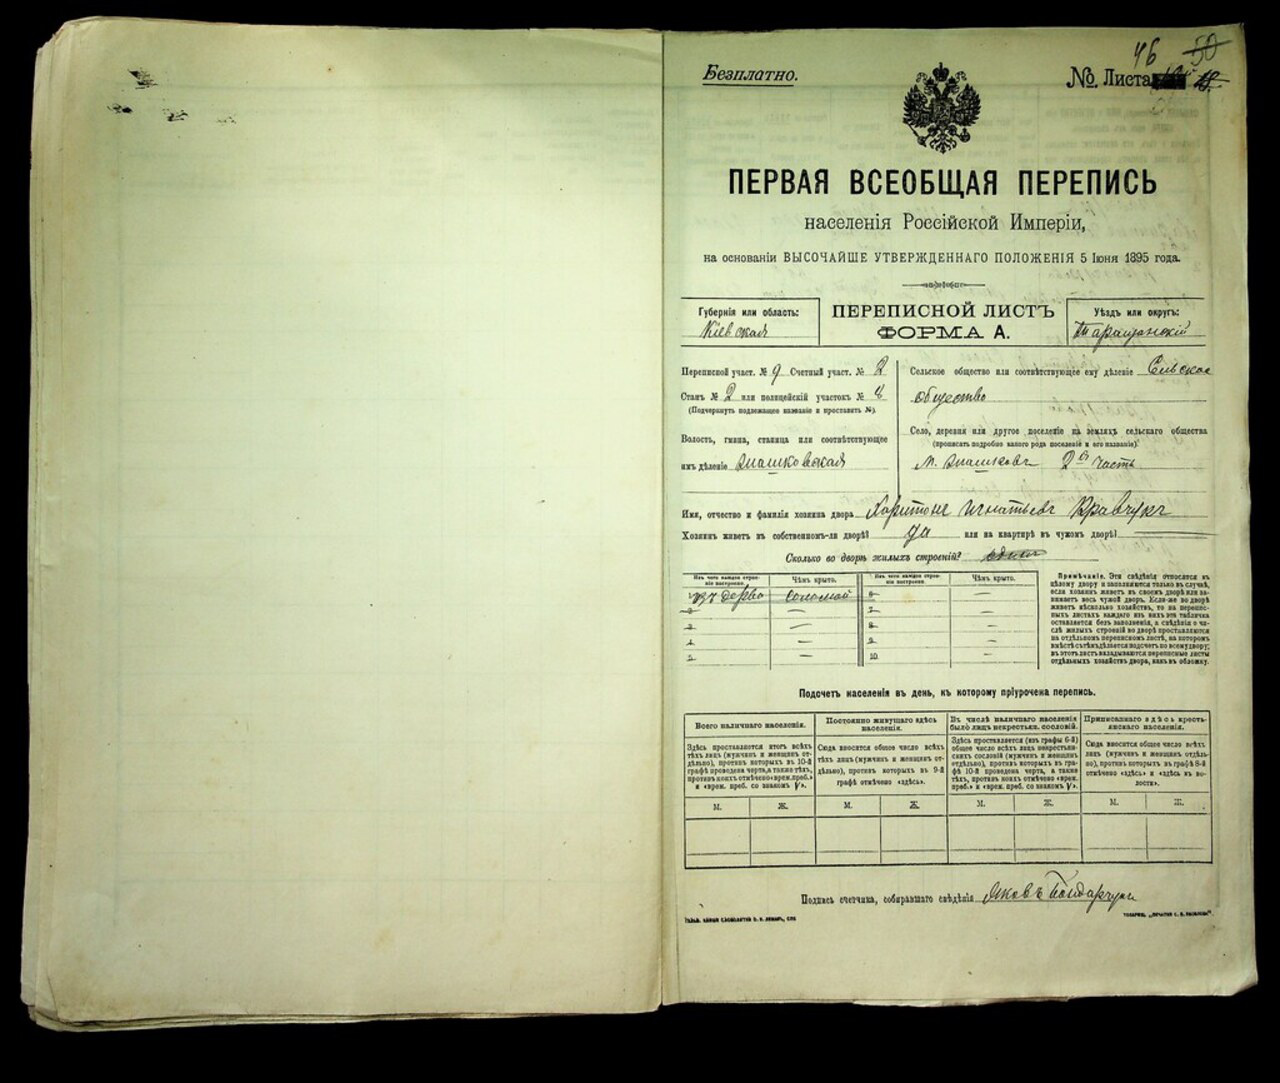 46 50
Безплатно.
№. Листа
ПЕРВАЯ ВСЕОБЩАЯ ПЕРЕПИСЬ
населенія Россійской Имперіи,
на основаніи ВЫСОЧАЙШЕ УТВЕРЖДЕННАГО ПОЛОЖЕНІЯ 5 Іюня 1895 года.
Губернія или область:
Кіевская
ПЕРЕПИСНОЙ ЛИСТЪ
ФОРМА А.
Уѣздъ или округъ:
Таращанскій
Переписной участ. № 9 Счетный участ. № 2
Станъ № 2 или полицейскій участокъ №
(Подчеркнуть подлежащее названіе и проставить №).
Волость, гмина, станица или соотвѣтствующее
имъ дѣленіе
Сельское общество или соотвѣтствующее ему дѣленіе Сельское
общество
Село, деревня или другое поселеніе на земляхъ сельскаго общества
(прописать подробно какого рода поселеніе и его названіе):
2я часть
Имя, отчество и фамилія хозяина двора Харитонъ Игнатьевъ Кравчукъ
Хозяинъ живетъ въ собственномъ-ли дворѣ? да или на квартирѣ въ чужомъ дворѣ?
Сколько во дворѣ жилыхъ строеній? одно
Изъ чего каждое строеніе построено.
Чѣмъ крыто.
Изъ чего каждое строеніе построено.
Чѣмъ крыто.
изъ дерева соломой 6.
2. — 7. —
3. — 8. —
4. — 9. —
5. — 10. —
Примѣчаніе. Эти свѣдѣнія относятся къ
цѣлому двору и заполняются только въ случаѣ,
если хозяинъ живетъ въ своемъ дворѣ или занимаетъ
весь чужой дворъ. Если-же во дворѣ
живетъ нѣсколько хозяйствъ, то на переписныхъ
листахъ каждаго изъ нихъ эта табличка
оставляется безъ заполненія, а свѣдѣнія о числѣ
жилыхъ строеній во дворѣ проставляются
на отдѣльномъ переписномъ листѣ, на которомъ
вмѣстѣ съ тѣмъ дѣлается подсчетъ по всему двору;
въ этотъ листъ вкладываются переписные листы
отдѣльныхъ хозяйствъ двора, какъ въ обложку.
Подсчетъ населенія въ день, къ которому пріурочена перепись.
Всего наличнаго населенія.
Здѣсь проставляется итогъ всѣхъ
тѣхъ лицъ (мужчинъ и женщинъ отдѣльно),
противъ которыхъ въ 10-й
графѣ проведена черта, а также тѣхъ,
противъ коихъ отмѣчено «врем. преб.»
и «врем. преб. со знакомъ V».
М. Ж.
Постоянно живущаго здѣсь
населенія.
Сюда вносится общее число всѣхъ
тѣхъ лицъ (мужчинъ и женщинъ отдѣльно),
противъ которыхъ въ 9-й
графѣ отмѣчено «здѣсь».
М. Ж.
Въ числѣ наличнаго населенія
было лицъ некрестьян. сословій.
Здѣсь проставляется (изъ графы 6-й)
общее число всѣхъ лицъ некрестьянскихъ
сословій (мужчинъ и женщинъ
отдѣльно), противъ которыхъ въ графѣ
10-й проведена черта, а также
тѣхъ, противъ коихъ отмѣчено «врем.
преб.» и «врем. преб. со знакомъ V».
М. Ж.
Приписаннаго здѣсь крестьянскаго
населенія.
Сюда вносится общее число всѣхъ
лицъ (мужчинъ и женщинъ отдѣльно),
противъ которыхъ въ графѣ 8-й
отмѣчено «здѣсь» и «здѣсь въ волости».
М. Ж.
Подпись счетчика, собиравшаго свѣдѣнія Яковъ Бондарчукъ